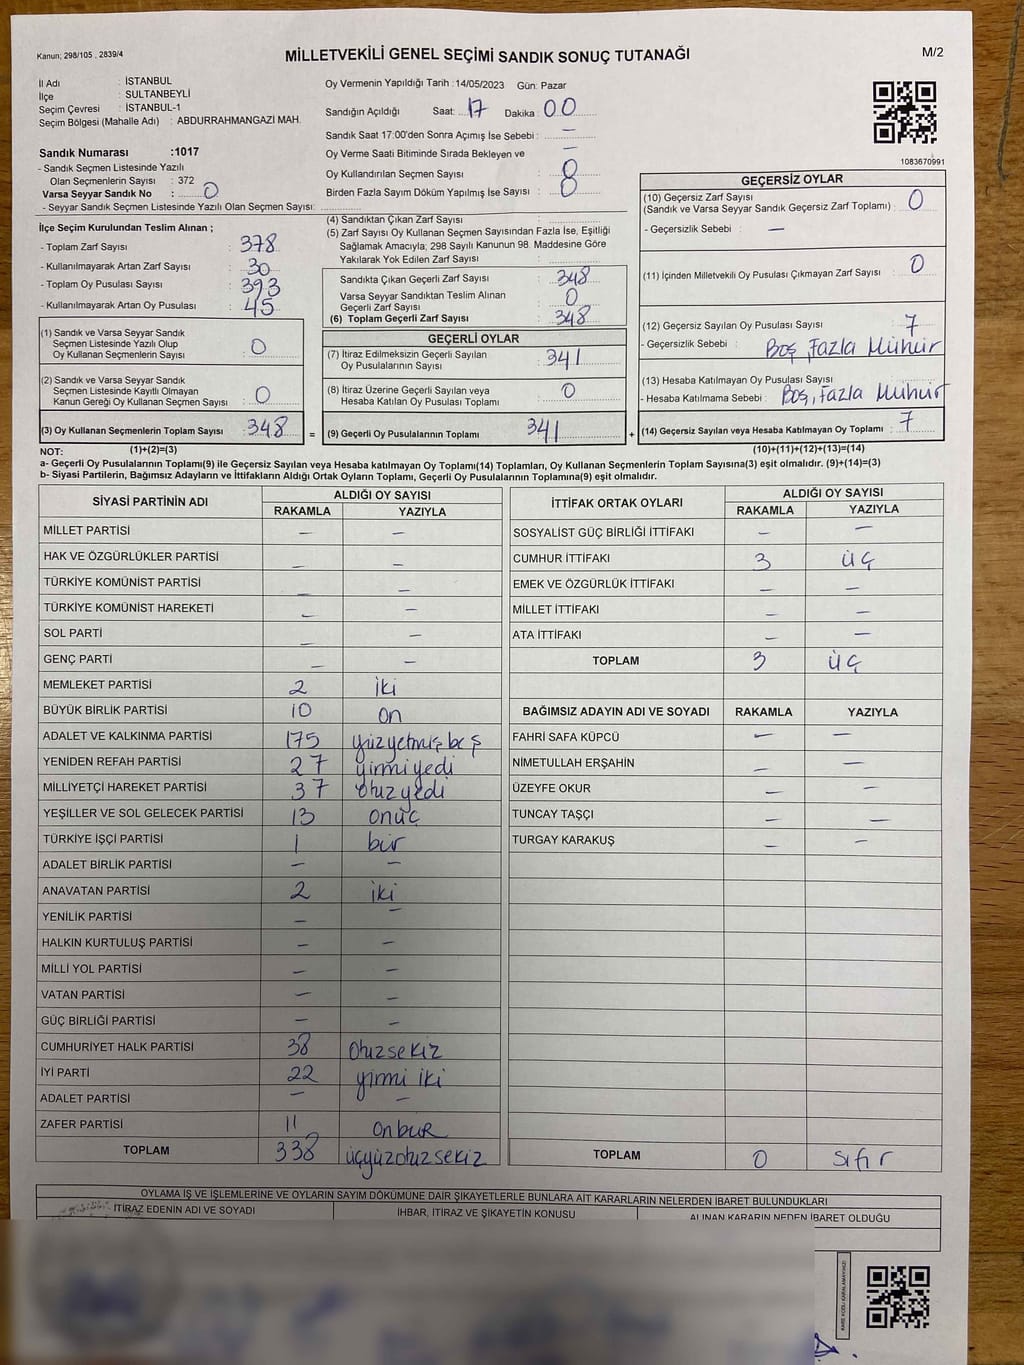 Kanun; 298/105 , 2839/4
MİLLETVEKİLİ GENEL SEÇİMİ SANDIK SONUÇ TUTANAĞI
M/2
İl Adı : İSTANBUL
İlçe : SULTANBEYLİ
Seçim Çevresi : İSTANBUL-1
Seçim Bölgesi (Mahalle Adı) : ABDURRAHMANGAZİ MAH.
Sandık Numarası :1017
- Sandık Seçmen Listesinde Yazılı
Olan Seçmenlerin Sayısı : 372
Varsa Seyyar Sandık No : 0
- Seyyar Sandık Seçmen Listesinde Yazılı Olan Seçmen Sayısı:
Oy Vermenin Yapıldığı Tarih :14/05/2023 Gün: Pazar
Sandığın Açıldığı Saat: 17 Dakika: 00
Sandık Saat 17:00'den Sonra Açımış İse Sebebi : —
Oy Verme Saati Bitiminde Sırada Bekleyen ve —
Oy Kullandırılan Seçmen Sayısı : 0
Birden Fazla Sayım Döküm Yapılmış İse Sayısı : 0
1083670991
İlçe Seçim Kurulundan Teslim Alınan ;
- Toplam Zarf Sayısı : 378
- Kullanılmayarak Artan Zarf Sayısı : 30
- Toplam Oy Pusulası Sayısı : 393
- Kullanılmayarak Artan Oy Pusulası : 45
(1) Sandık ve Varsa Seyyar Sandık
Seçmen Listesinde Yazılı Olup
Oy Kullanan Seçmenlerin Sayısı : 0
(2) Sandık ve Varsa Seyyar Sandık
Seçmen Listesinde Kayıtlı Olmayan
Kanun Gereği Oy Kullanan Seçmen Sayısı : 0
(3) Oy Kullanan Seçmenlerin Toplam Sayısı : 348
(4) Sandıktan Çıkan Zarf Sayısı :
(5) Zarf Sayısı Oy Kullanan Seçmen Sayısından Fazla İse, Eşitliği
Sağlamak Amacıyla; 298 Sayılı Kanunun 98. Maddesine Göre
Yakılarak Yok Edilen Zarf Sayısı :
Sandıkta Çıkan Geçerli Zarf Sayısı : 348
Varsa Seyyar Sandıktan Teslim Alınan
Geçerli Zarf Sayısı : 0
(6) Toplam Geçerli Zarf Sayısı : 348
GEÇERLİ OYLAR
(7) İtiraz Edilmeksizin Geçerli Sayılan
Oy Pusulalarının Sayısı : 341
(8) İtiraz Üzerine Geçerli Sayılan veya
Hesaba Katılan Oy Pusulası Toplamı : 0
= (9) Geçerli Oy Pusulalarının Toplamı : 341
GEÇERSİZ OYLAR
(10) Geçersiz Zarf Sayısı
(Sandık ve Varsa Seyyar Sandık Geçersiz Zarf Toplamı) : 0
- Geçersizlik Sebebi : —
(11) İçinden Milletvekili Oy Pusulası Çıkmayan Zarf Sayısı : 0
(12) Geçersiz Sayılan Oy Pusulası Sayısı : 7
- Geçersizlik Sebebi : Boş, Fazla Mühür
(13) Hesaba Katılmayan Oy Pusulası Sayısı :
- Hesaba Katılmama Sebebi : Boş, Fazla Mühür
+ (14) Geçersiz Sayılan veya Hesaba Katılmayan Oy Toplamı : 7
NOT: (1)+(2)=(3) (10)+(11)+(12)+(13)=(14)
a- Geçerli Oy Pusulalarının Toplamı(9) ile Geçersiz Sayılan veya Hesaba katılmayan Oy Toplamı(14) Toplamları, Oy Kullanan Seçmenlerin Toplam Sayısına(3) eşit olmalıdır. (9)+(14)=(3)
b- Siyasi Partilerin, Bağımsız Adayların ve İttifakların Aldığı Ortak Oyların Toplamı, Geçerli Oy Pusulalarının Toplamına(9) eşit olmalıdır.
SİYASİ PARTİNİN ADI ALDIĞI OY SAYISI
RAKAMLA YAZIYLA
MİLLET PARTİSİ — —
HAK VE ÖZGÜRLÜKLER PARTİSİ — —
TÜRKİYE KOMÜNİST PARTİSİ — —
TÜRKİYE KOMÜNİST HAREKETİ — —
SOL PARTİ — —
GENÇ PARTİ — —
MEMLEKET PARTİSİ 2 iki
BÜYÜK BİRLİK PARTİSİ 10 on
ADALET VE KALKINMA PARTİSİ 175 yüzyetmişbeş
YENİDEN REFAH PARTİSİ 27 yirmiyedi
MİLLİYETÇİ HAREKET PARTİSİ 37 otuzyedi
YEŞİLLER VE SOL GELECEK PARTİSİ 13 onüç
TÜRKİYE İŞÇİ PARTİSİ 1 bir
ADALET BİRLİK PARTİSİ — —
ANAVATAN PARTİSİ 2 iki
YENİLİK PARTİSİ — —
HALKIN KURTULUŞ PARTİSİ — —
MİLLİ YOL PARTİSİ — —
VATAN PARTİSİ — —
GÜÇ BİRLİĞİ PARTİSİ — —
CUMHURİYET HALK PARTİSİ 38 otuzsekiz
İYİ PARTİ 22 yirmi iki
ADALET PARTİSİ — —
ZAFER PARTİSİ 11 onbir
TOPLAM 338 üçyüzotuzsekiz
İTTİFAK ORTAK OYLARI ALDIĞI OY SAYISI
RAKAMLA YAZIYLA
SOSYALİST GÜÇ BİRLİĞİ İTTİFAKI — —
CUMHUR İTTİFAKI 3 üç
EMEK VE ÖZGÜRLÜK İTTİFAKI — —
MİLLET İTTİFAKI — —
ATA İTTİFAKI — —
TOPLAM 3 üç
BAĞIMSIZ ADAYIN ADI VE SOYADI RAKAMLA YAZIYLA
FAHRİ SAFA KÜPCÜ — —
NİMETULLAH ERŞAHİN — —
ÜZEYFE OKUR — —
TUNCAY TAŞÇI — —
TURGAY KARAKUŞ — —
TOPLAM 0 sıfır
OYLAMA İŞ VE İŞLEMLERİNE VE OYLARIN SAYIM DÖKÜMÜNE DAİR ŞİKAYETLERLE BUNLARA AİT KARARLARIN NELERDEN İBARET BULUNDUKLARI
İTİRAZ EDENİN ADI VE SOYADI İHBAR, İTİRAZ VE ŞİKAYETİN KONUSU ALINAN KARARIN NEDEN İBARET OLDUĞU